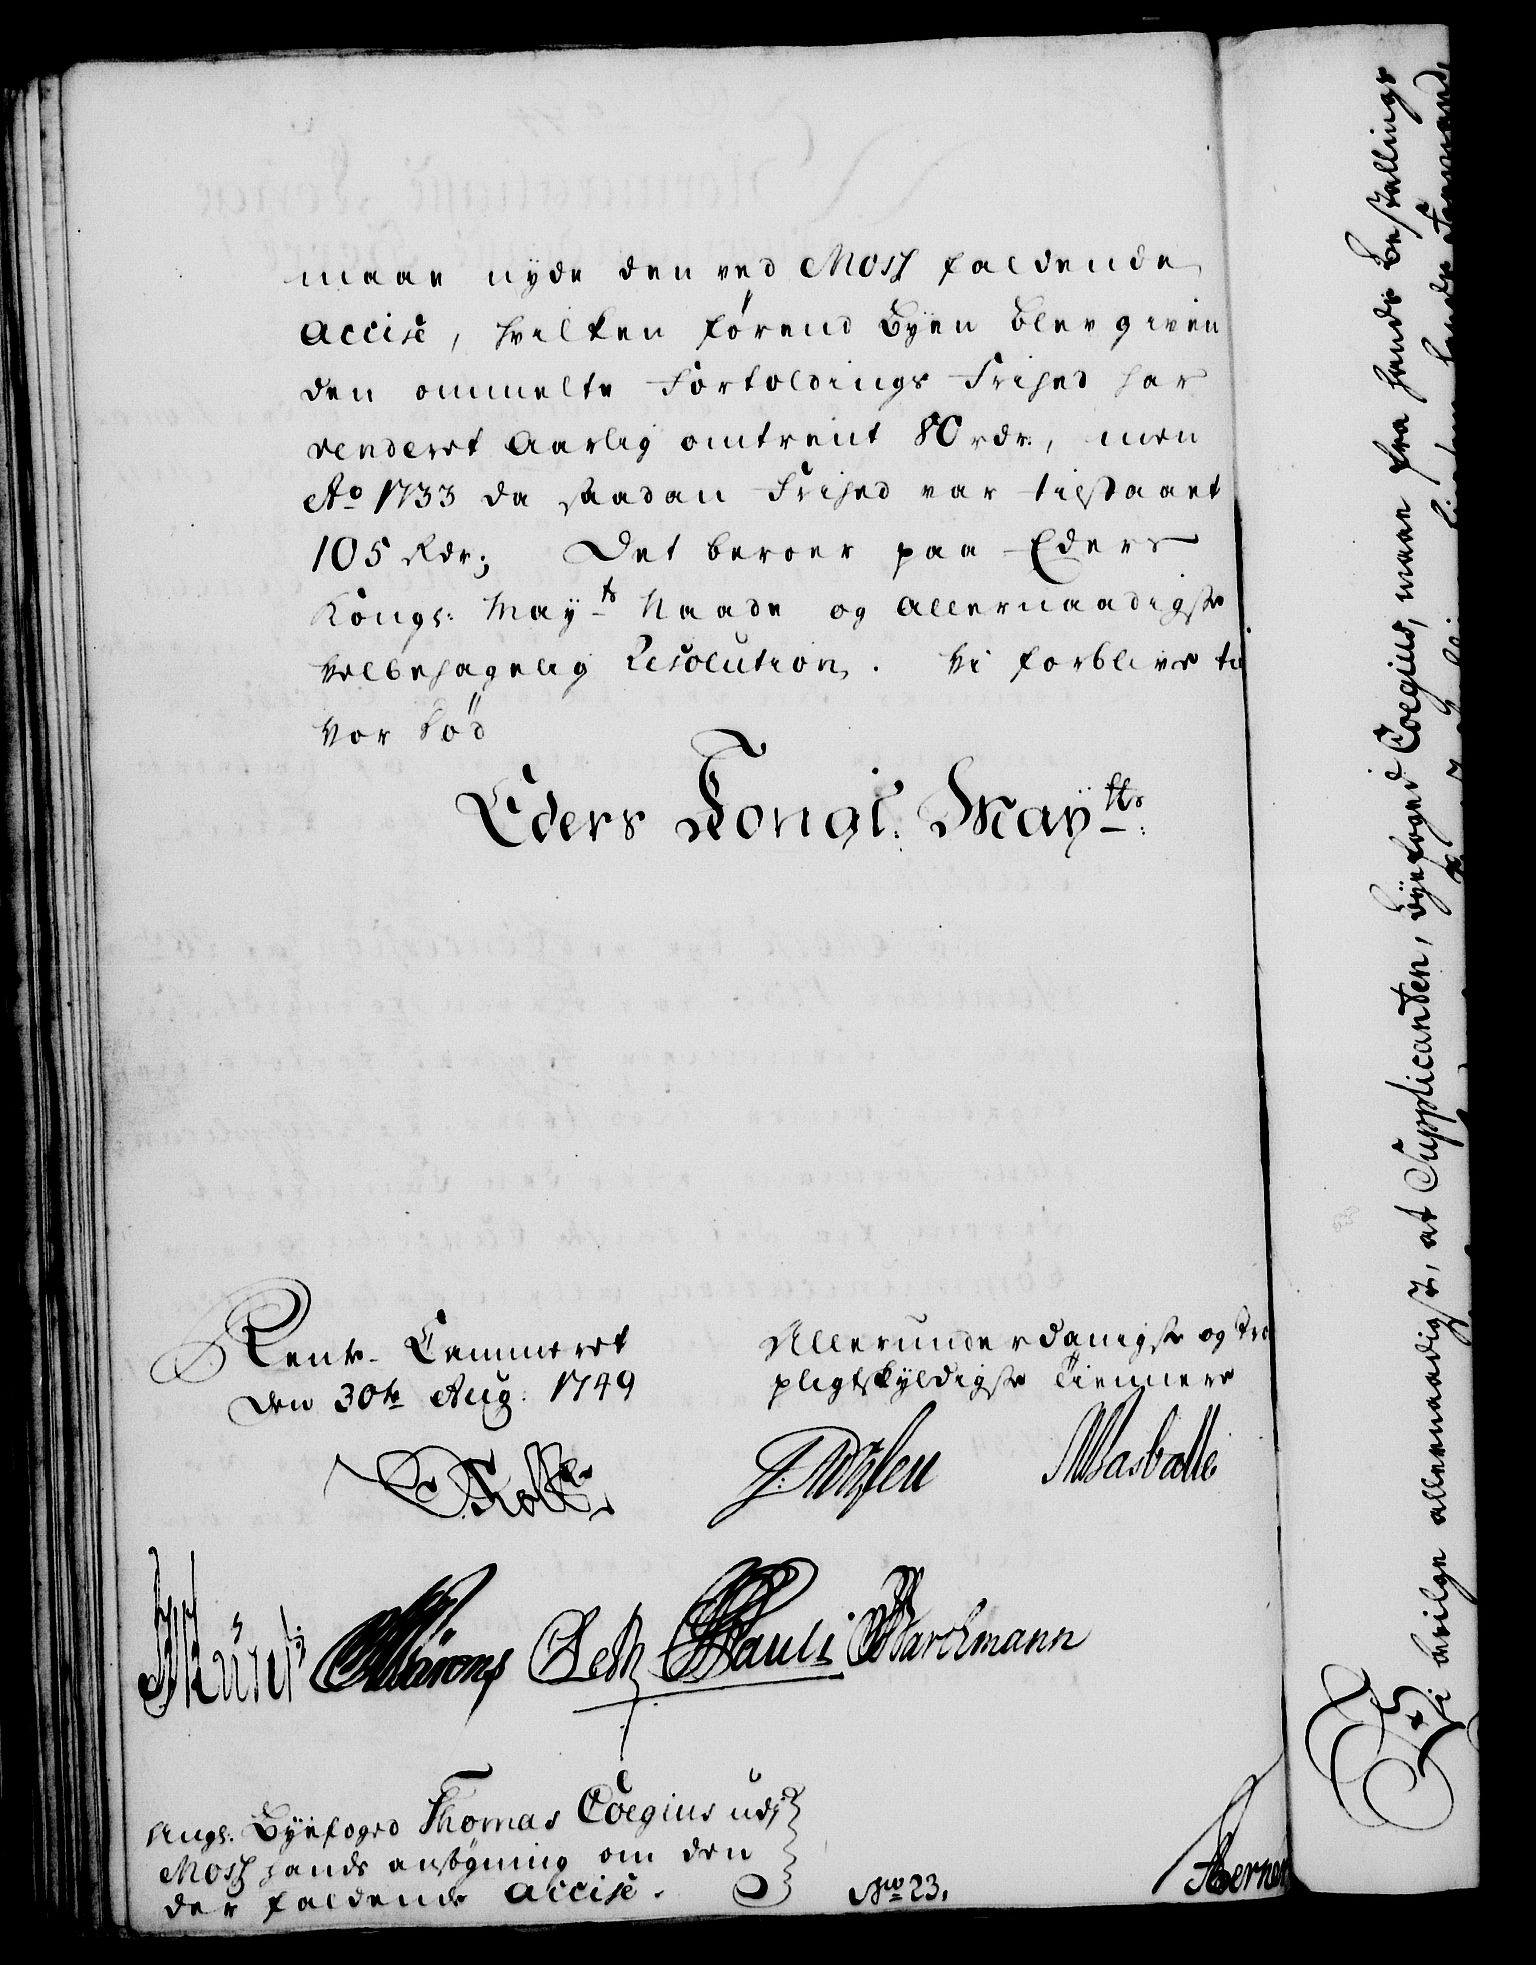 maae nyde den ved Moss faldende
Accise, hvilken førend Byen blev given
den ommelte Fortoldings Frihed har
renderet Aarlig omtrent 80 rdr., men
Ao 1733 da saadan Frihed var tilstaaet
105 Rdr; Det beroer paa Eders
Kongs: Mayts Naade og Allernaadigste
Velbehagelig Resolution. Vi forblive til
Vor Død
Eders Kongl. Maytts:
Rente-Cammeret
Den 30te Aug: 1749
Allerunderdanigste og Tro
pligtskyldigste Tiennere
Pauli Marckmann
Angs: Byefoged Thomas Coegius udj
Moss hands ansøgning om den
der faldende Accise.
No 23.
Vi bevilge allernaadigst, at Supplicanten, Byefoged Coegius, maae fra hands Bestallings